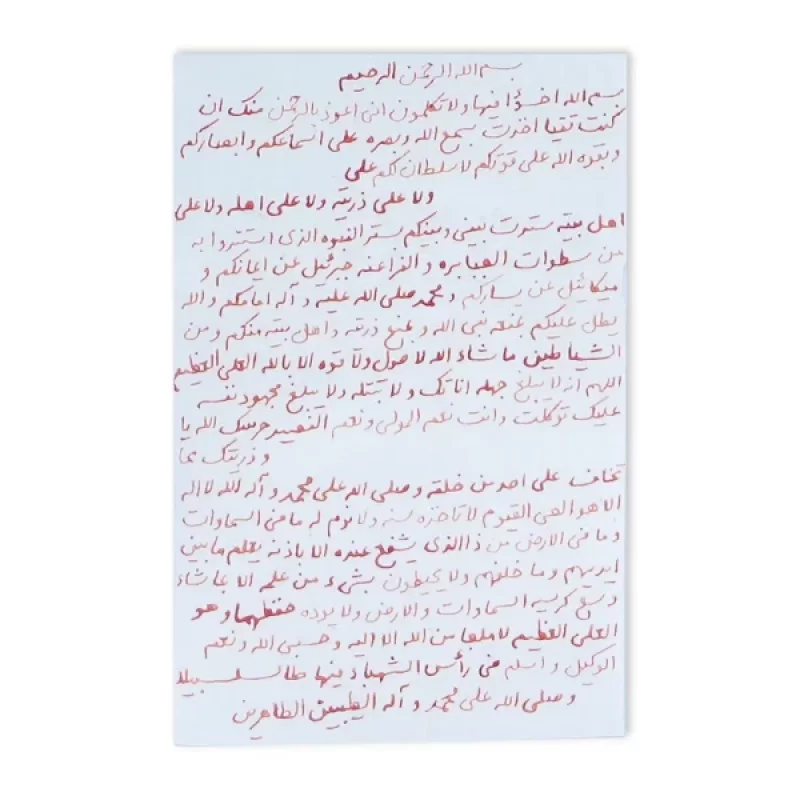 بسم الله الرحمن الرحيم
بسم الله اخسؤا فيها ولا تكلمون انى اعوذ بالرحمن منك ان
كنت تقيا اخذت بسمع الله وبصره على اسماعكم وابصاركم
وبقوه الله على قوتكم لا سلطان لكم على
ولا على ذريته ولا على اهله ولا على
اهل بيته سترت بينى وبينكم بستر النبوه الذى استتروا به
من سطوات الجبابره و الفراعنه جبرئيل عن ايمانكم و
ميكائيل عن يساركم و محمد صلى الله عليه و آله امامكم و الله
يطل عليكم بمنعه نبى الله و بمنع ذريته و اهل بيته منكم و من
الشياطين ما شاء الله لا حول ولا قوه الا بالله العلى العظيم
اللهم انه لا يبلغ جهله اناتك و لا تبتله ولا يبلغ مجهود نفسه
عليك توكلت وانت نعم المولى ونعم النصير حرسك الله يا
و ذريتك عما
تخاف على احد من خلقه و صلى الله على محمد و آله الله لا اله
الا هو الحى القيوم لا تاخذه سنه ولا نوم له ما فى السماوات
وما فى الارض من ذا الذى يشفع عنده الا باذنه يعلم ما بين
ايديهم وما خلفهم ولا يحيطون بشىء من علمه الا بما شاء
وسع كرسيه السماوات والارض ولا يوده حفظهما و هو
العلى العظيم لا ملجا من الله الا اليه و حسبى الله ونعم
الوكيل و اسلم فى رأس الشهباء فيها سلسبيلا
وصلى الله على محمد و آله الطيبين الطاهرين